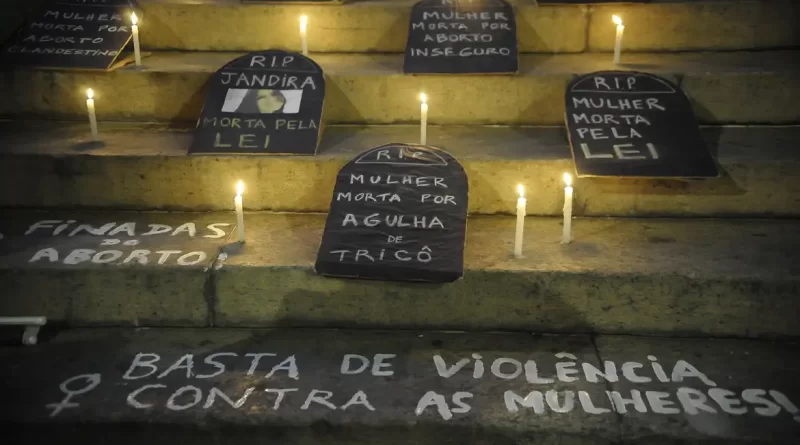 MULHER
MORTA POR
ABORTO
CLANDESTINO
RIP
JANDIRA
MORTA PELA
LEI
MULHER
MORTA POR
ABORTO
INSEGURO
RIP
MULHER
MORTA
PELA
LEI
RIP
MULHER
MORTA POR
AGULHA
DE
TRICÔ
FINADAS
do
ABORTO
BASTA DE VIOLÊNCIA
CONTRA AS MULHERES!